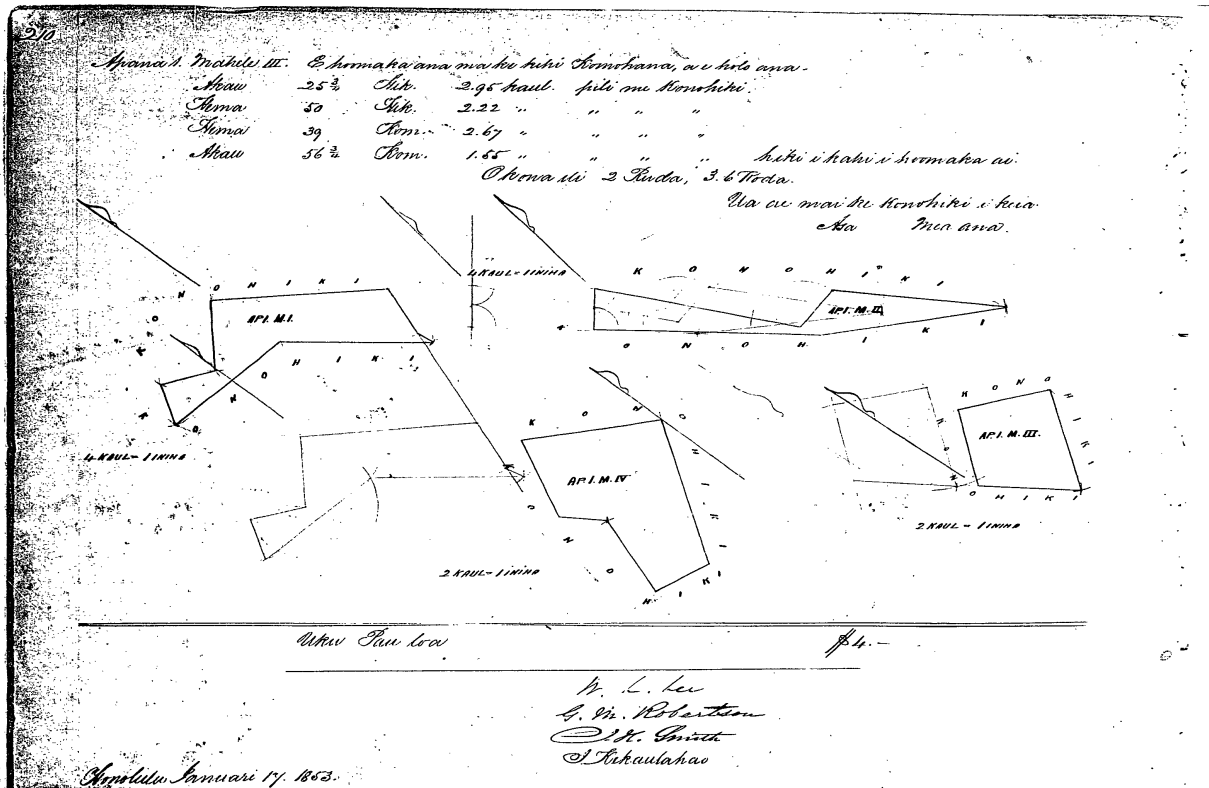 210
Apana 1. Mahele III. E hoomaka ana ma ke kihi Komohana, a e holo ana.
Akau 25 3/4 Hik. 2.95 kaul. pili me Konohiki.
Hema 50 Hik. 2.22 " " " "
Hema 39 Kom. 2.67 " " " "
Akau 56 3/4 Kom. 1.55 " " " " hiki i kahi i hoomaka ai.
Okona ili 2 Ruda, 3.6 Roda.
Ua ae mai ke Konohiki i keia.
Asa Mea ana.
KONOHIKI
AP.1. M.I.
KONOHIKI
4 KAUL = 1 INIHA
4 KAUL = 1 INIHA
KONOHIKI
AP.1. M.II
KONOHIKI
KONOHIKI
AP.1. M.IV
KONOHIKI
2 KAUL = 1 INIHA
KONOHIKI
AP.1. M.III.
KONOHIKI
2 KAUL = 1 INIHA
Uku Pau loa $4.-
W. L. Lee
G. M. Robertson
J. H. Smith
J. Kekaulahao
Honolulu Januari 17. 1853.